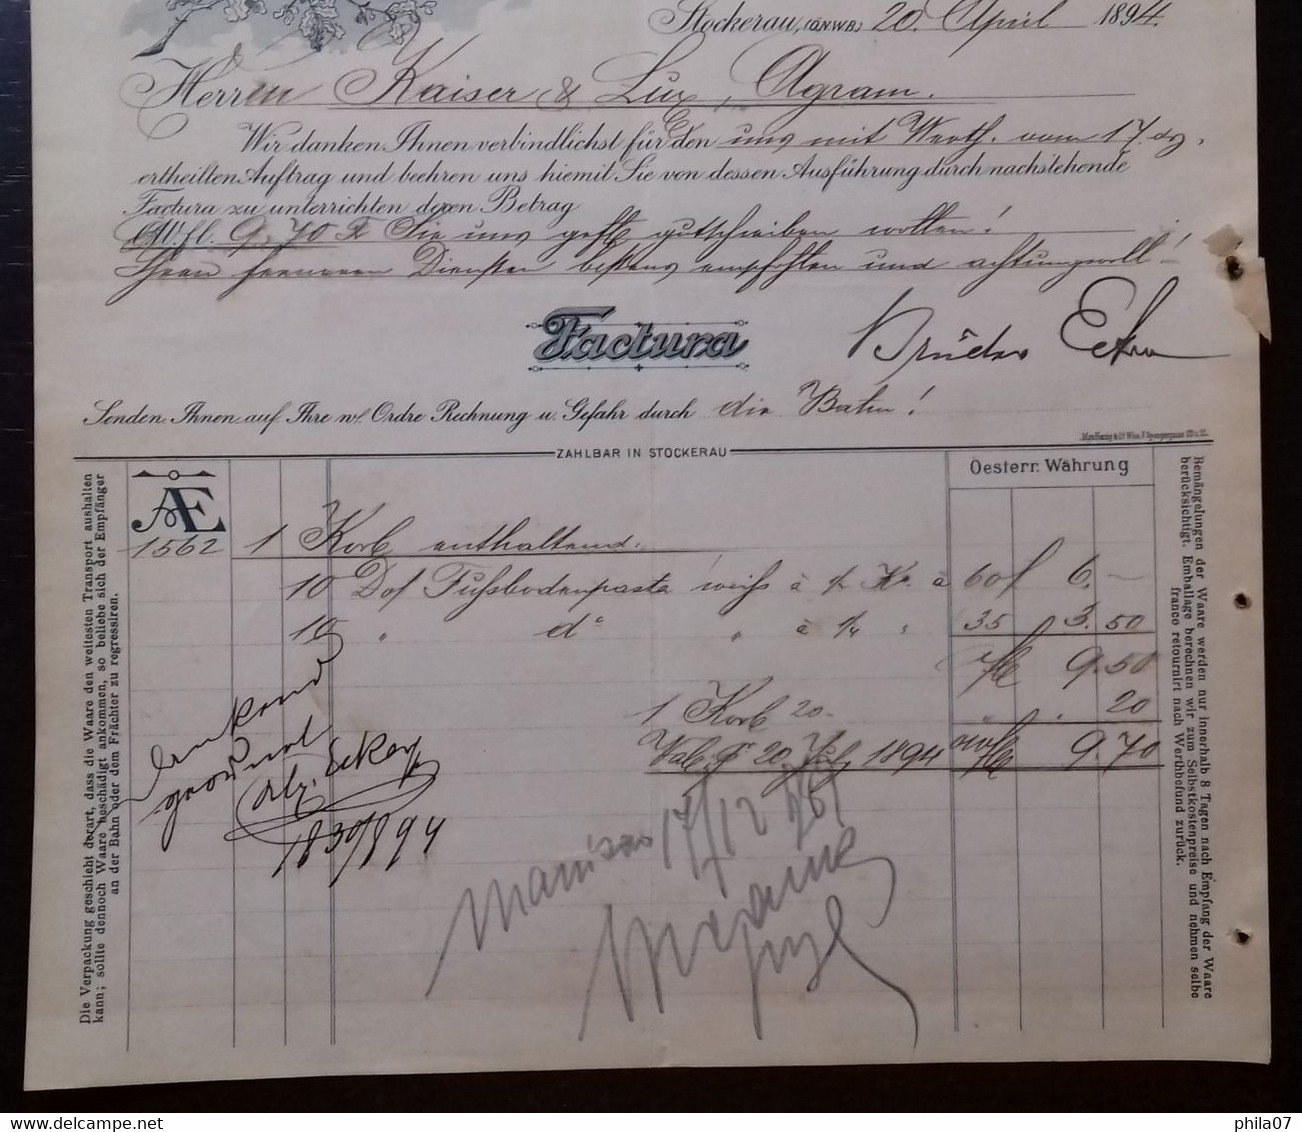 Stockerau, (Ö.N.W.B.) 20. April 1894.
Herren Kaiser & Lux, Agram.
Wir danken Ihnen verbindlichst für den uns mit Werth. vom 17. ds.
ertheilten Auftrag und beehren uns hiemit Sie von dessen Ausführung durch nachstehende
Factura zu unterrichten deren Betrag
ÖW. fl. 9.70 Sie uns gefl. gutschreiben wollen!
Ihren ferneren Diensten bestens empfohlen und achtungsvoll!
Factura
Brüder
Senden Ihnen auf Ihre w. Ordre Rechnung u. Gefahr durch die Bahn!
ZAHLBAR IN STOCKERAU
Oesterr. Währung
AE
1562 1 Korb enthaltend:
10 Dos Fussbodenpasta weiss à 1/2 Ko. à 60 f 6.—
10 " do " à 1/4 " 35 3.50
9.50
1 Korb 20.- 20
Val. pr 20. July 1894 9.70
dankend
17/12
Die Verpackung geschieht derart, dass die Waare den weitesten Transport aushalten
kann; sollte dennoch Waare beschädigt ankommen, so beliebe sich der Empfänger
an der Bahn oder dem Frächter zu regressiren.
Bemängelungen der Waare werden nur innerhalb 8 Tagen nach Empfang der Waare
berücksichtigt. Emballage berechnen wir zum Selbstkostenpreise und nehmen selbe
franco retournirt nach Werthbefund zurück.
phila07